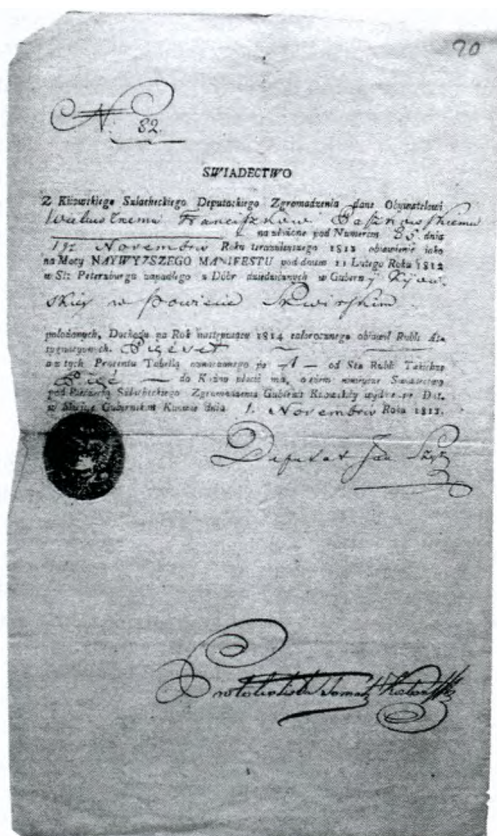 20
N. 82.
SWIADECTWO
Z Kiiowskiego Szlacheckiego Deputackiego Zgromadzenia dane Obywatelowi
Wielmożnemu Franciszkowi Paszkowskiemu
na złożone pod Numerem 85. dnia
Novembra Roku teraznieyszego 1813 obiawienie iako
na Mocy NAYWYZSZEGO MANIFESTU pod dniem 11 Lutego Roku 1812
w St: Petersburgu zapadłego z Dóbr dziedzicznych w Guberny Kijow
skiey w Powiecie Skwirskim
położonych, Dochodu na Rok następuiący 1814 całorocznego obiawił Rubli As-
sygnacyinych. Pięćset
a z tych Procentu Tabellą oznaczonego po 1 od Sta Rubli Takichże
Pięć do Kazny płacić ma, o czém ninieysze Swiadectwo
pod Pieczęcią Szlacheckiego Zgromadzenia Gubernii Kiiowskiey wydaie się Dat.
w Mieście Gubernskim Kiiowie dnia 1. Novembra Roku 1813.
Deputat Jan
Tomasz